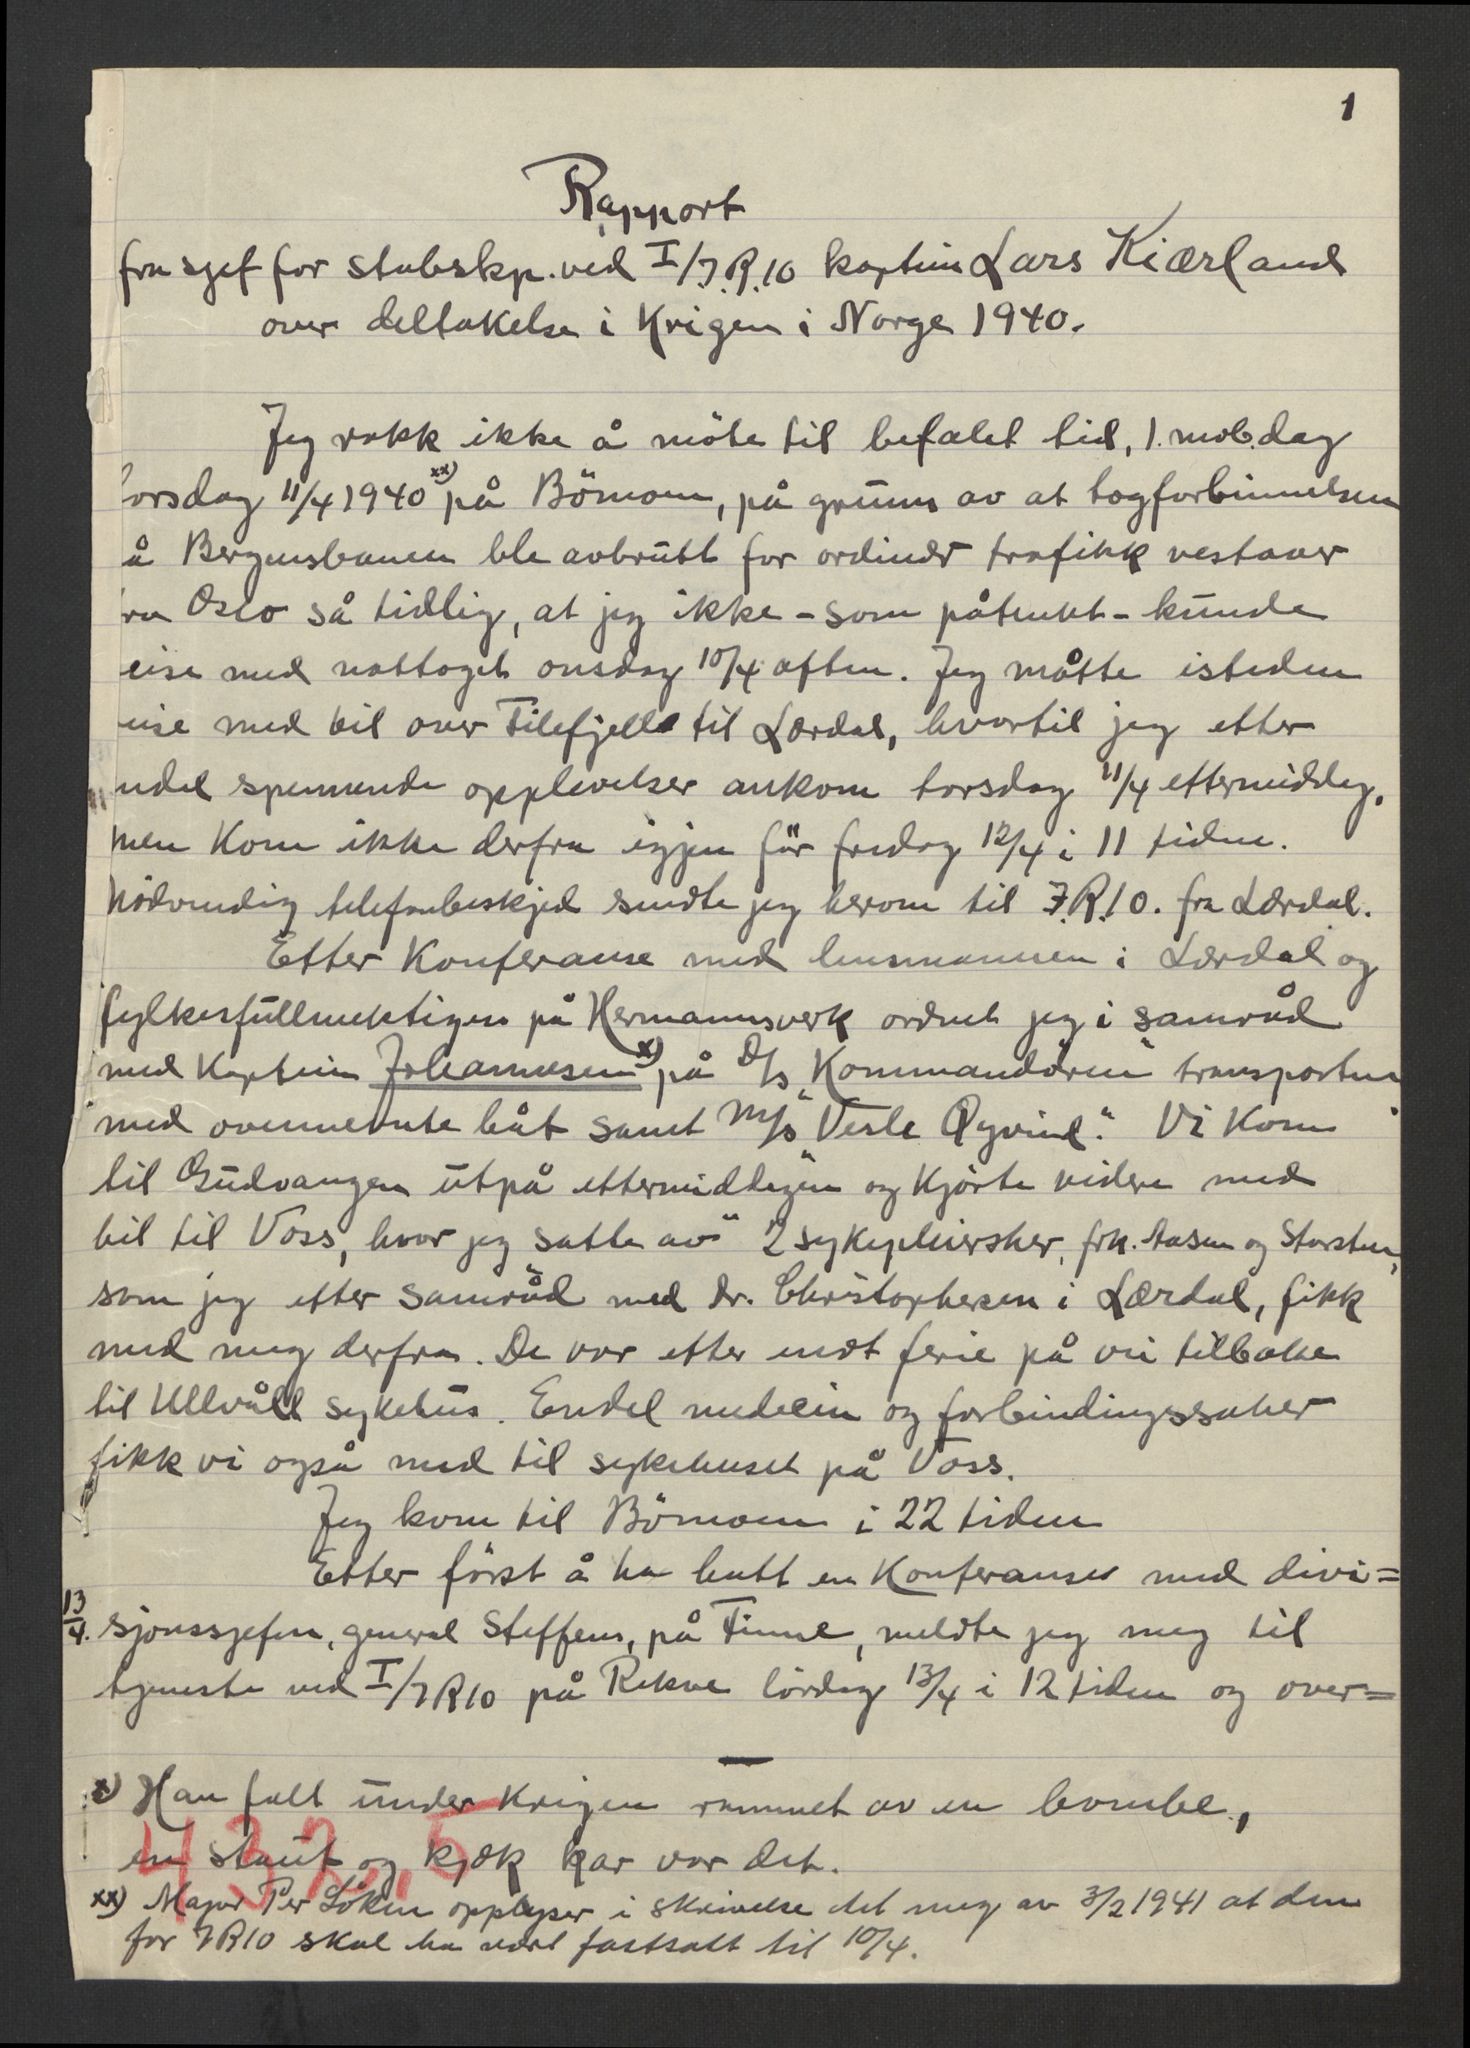 1
Rapport
fra sjef for stabskp. ved I/J.R.10 kaptein Lars Kiærland
over deltakelse i Krigen i Norge 1940.
Jeg rakk ikke å möte til befalet tid, 1. mob.dag
torsdag 11/4 1940 xx) på Bömoen, på grunn av at togforbinnelsen
å Bergensbanen ble avbrutt for ordinær trafikk vestover
ra Oslo så tidlig, at jeg ikke - som påtenkt - kunde
eise med nattoget onsdag 10/4 aften. Jeg måtte isteden
eise med bil over Filefjell til Lærdal, hvortil jeg etter
endel spennende opplevelser ankom torsdag 11/4 ettermiddag,
men kom ikke derfra igjen för fredag 12/4 i 11 tiden.
Nödvendig telefonbeskjed sendte jeg herom til J.R.10. fra Lærdal.
Etter Konferanse med lensmannen i Lærdal og
fylkesfullmektigen på Hermannsverk ordnet jeg i samråd
med Kaptein Johannesen x) på D/S "Kommandören" transporten
med ovennevnte båt samt M/S "Vesle Øyvind". Vi kom
til Gudvangen utpå ettermiddagen og kjörte videre med
bil til Voss, hvor jeg satte av 2 sykepleiersker, frk. Aasen og Storsten,
som jeg etter samråd med dr. Christophersen i Lærdal, fikk
med meg derfra. De var etter endt ferie på vei tilbake
til Ullvåll sykehus. Endel medisin og forbindingssaker
fikk vi også med til sykehuset på Voss.
Jeg kom til Bömoen i 22 tiden
Etter först å ha hatt en Konferanse med divi=
13/4. sjonssjefen, general Steffens, på Finne, meldte jeg meg til
tjeneste ved I/JR10 på Rekve lördag 13/4 i 12 tiden og over=
x) Han falt under Krigen rammet av en bombe,
en staut og kjæk kar var det.
432,5
xx) Major Per Löken opplyser i skrivelse til meg av 3/2 1941 at den
for JR10 skal ha vært fastsatt til 10/4.